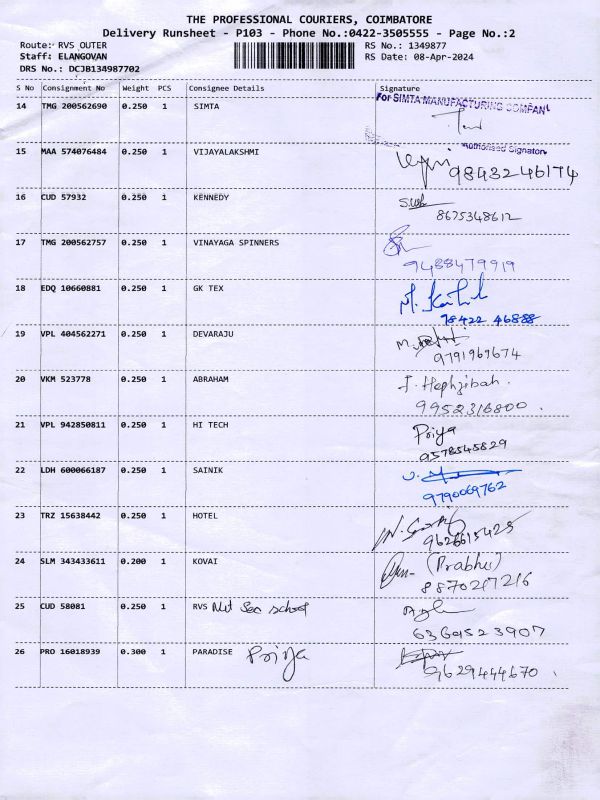 THE PROFESSIONAL COURIERS, COIMBATORE
Delivery Runsheet - P103 - Phone No.:0422-3505555 - Page No.:2
Route: RVS OUTER RS No.: 1349877
Staff: ELANGOVAN RS Date: 08-Apr-2024
DRS No.: DCJB134987702
S No Consignment No Weight PCS Consignee Details Signature
For SIMTA MANUFACTURING COMPANY
14 TMG 200562690 0.250 1 SIMTA
Authorised Signatory
15 MAA 574076484 0.250 1 VIJAYALAKSHMI
9843246174
16 CUD 57932 0.250 1 KENNEDY
8675348612
17 TMG 200562757 0.250 1 VINAYAGA SPINNERS
9488479919
18 EDQ 10660881 0.250 1 GK TEX
78422 46888
19 VPL 404562271 0.250 1 DEVARAJU
9791969674
20 VKM 523778 0.250 1 ABRAHAM J. Hephzibah.
9952316800.
21 VPL 942850811 0.250 1 HI TECH Priya
9578545829
22 LDH 600066187 0.250 1 SAINIK
9790069762
23 TRZ 15638442 0.250 1 HOTEL
9626615425
24 SLM 343433611 0.200 1 KOVAI (Prabhu)
8870217216
25 CUD 58081 0.250 1 RVS Sec school
6369523907
26 PRO 16018939 0.300 1 PARADISE Priya
9629444670.